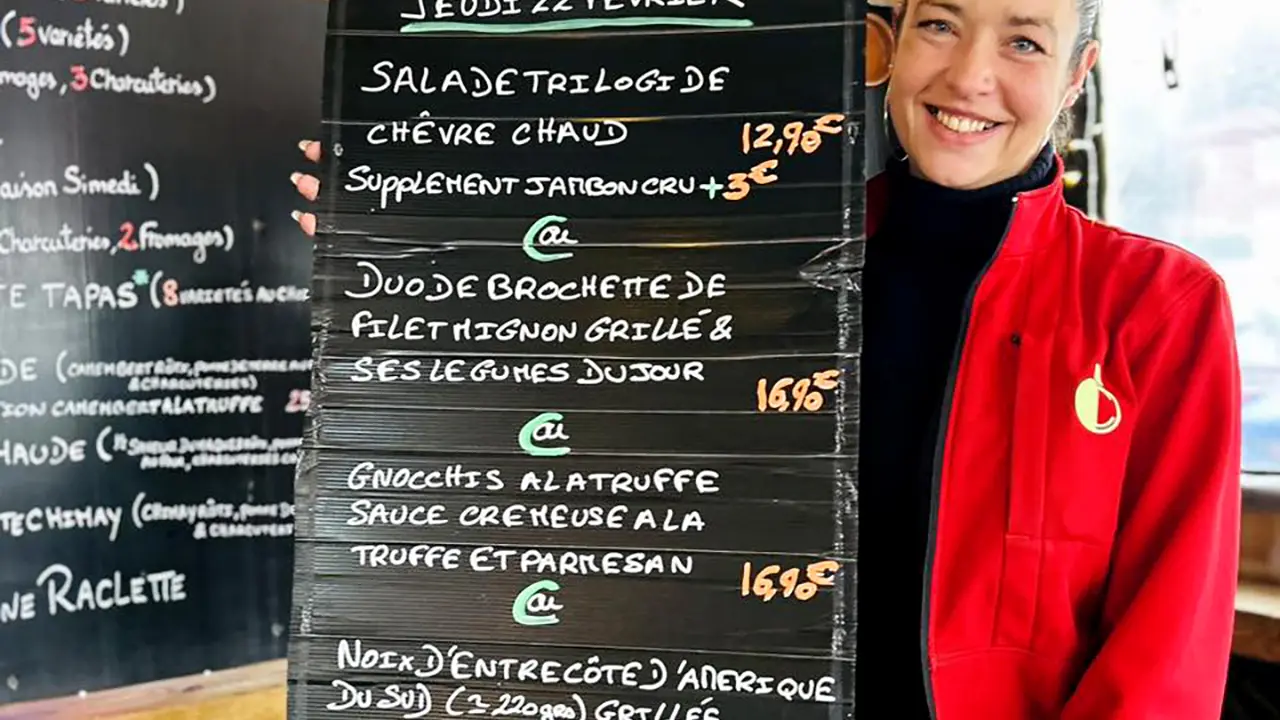 (5 variétés)
mages, 3 Charcuteries)
aison Simedi)
Charcuteries, 2 Fromages)
E TAPAS* (8 VARIETÉS AU CHOI
DE (CAMEMBERT RÔTI, POMME DE TERRE
& CHARCUTERIES)
TION CAMEMBERT A LA TRUFFE 25
HAUDE (
TE CHIMAY (CHIMAY RÔTI, POMME DE
& CHARCUTERI
NE RACLETTE
JEUDI 22 FÉVRIER
SALADE TRILOGI DE
CHÊVRE CHAUD 12,90€
SUPPLEMENT JAMBON CRU + 3€
Ou
DUO DE BROCHETTE DE
FILET MIGNON GRILLÉ &
SES LEGUMES DU JOUR 16,90€
Ou
GNOCCHIS A LA TRUFFE
SAUCE CREMEUSE A LA
TRUFFE ET PARMESAN 16,90€
Ou
NOIX D'ENTRECÔTE D'AMERIQUE
DU SUD (≃ 220 grs) GRILLÉE